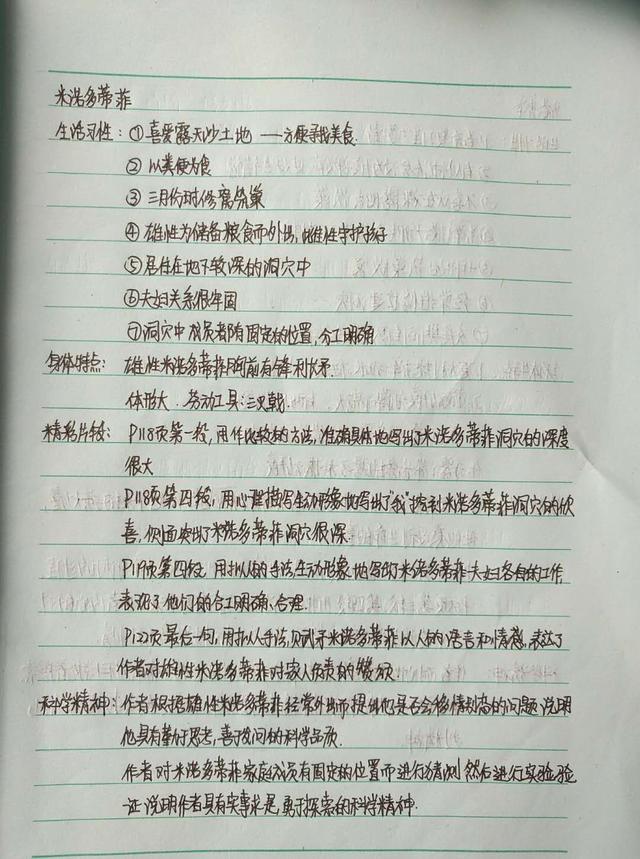 米诺多蒂菲
生活习性：①喜爱露天沙土地 ——方便寻找美食.
② 以粪便为食
③ 三月份时修窝筑巢
④ 雄性为储备粮食而外出,雌性守护孩子
⑤居住在地下较深的洞穴中
⑥夫妇关系很牢固
⑦洞穴中成员都有固定的位置,分工明确
身体特点： 雄性米诺多蒂菲胸前有锋利长矛.
体形大. 劳动工具:三叉戟.
精彩片段： P118页第一段,用作比较的方法,准确具体地写出了米诺多蒂菲洞穴的深度
很大
P118页第四段,用心理描写生动形象地写出了"我"挖到米诺多蒂菲洞穴的欣
喜,侧面突出了米诺多蒂菲洞穴很深.
P119页第四段.用拟人的手法,生动形象地写出了米诺多蒂菲夫妇各自的工作,
表现了他们的分工明确、合理.
P122页最后一句,用拟人手法,赋予米诺多蒂菲以人的语言和情感,表达了
作者对雄性米诺多蒂菲对家人负责的赞颂
科学精神：作者根据雄性米诺多蒂菲经常外出而提出他是否会移情别恋的问题,说明
他具有勤于思考,善于发问的科学品质.
作者对米诺多蒂菲家庭成员有固定的位置而进行猜测,然后进行实验验
证,说明作者具有实事求是,勇于探索的科学精神.